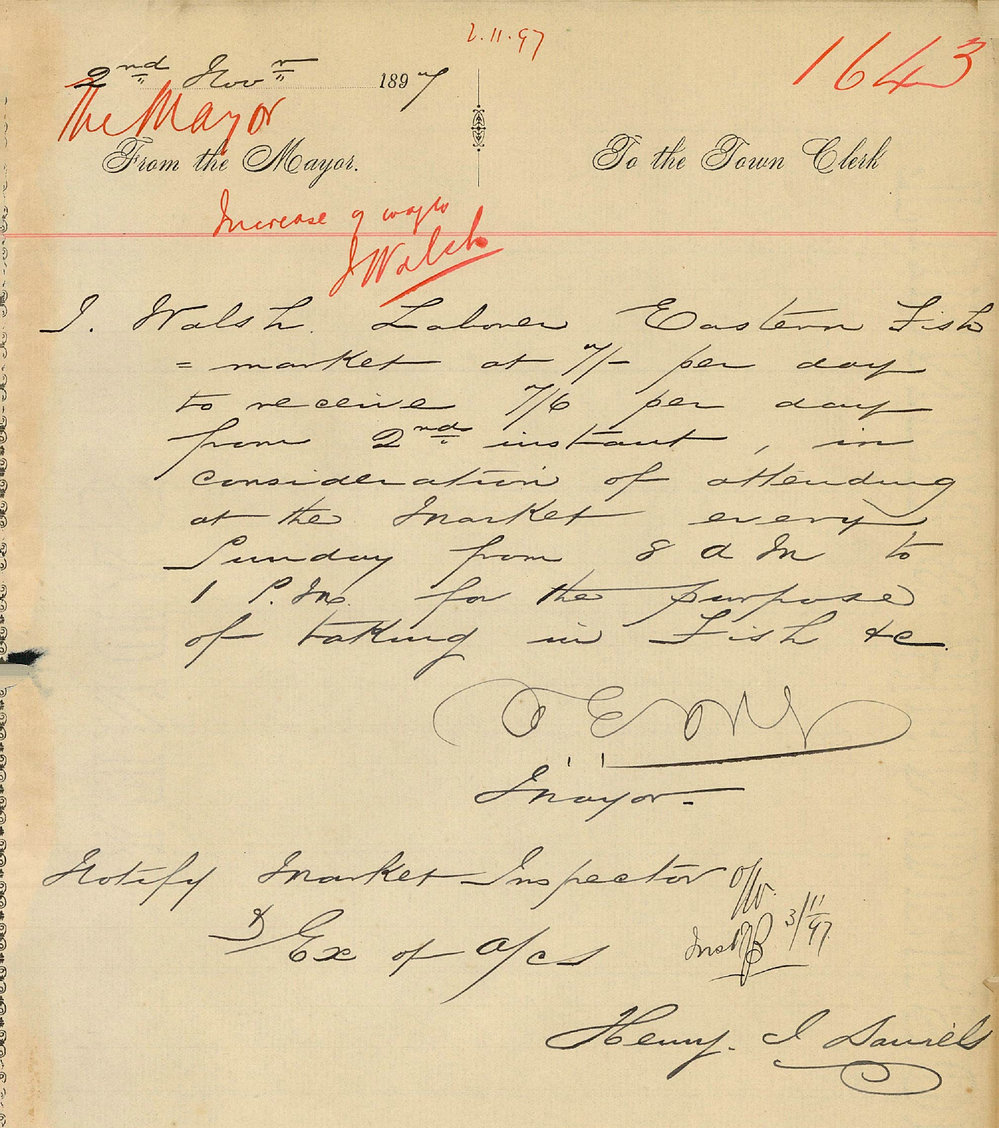 2.11.97
1643
2nd Novr 1897
The Mayor
From the Mayor.
To the Town Clerk
Increase of wages
J Walsh
J. Walsh. Laborer Eastern Fish
= market at 7/- per day
to receive 7/6 per day
from 2nd instant, in
consideration of attending
at the Market every
Sunday from 8 a M to
1 P.M. for the purpose
of taking in Fish &c.
Mayor.
Notify Market Inspector
& Ex of a/cs
3/11/97
Henry. J Daniels